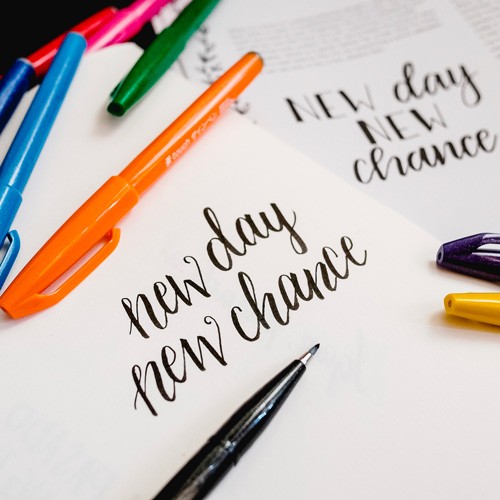 NEW day
NEW
chance
new day
new chance